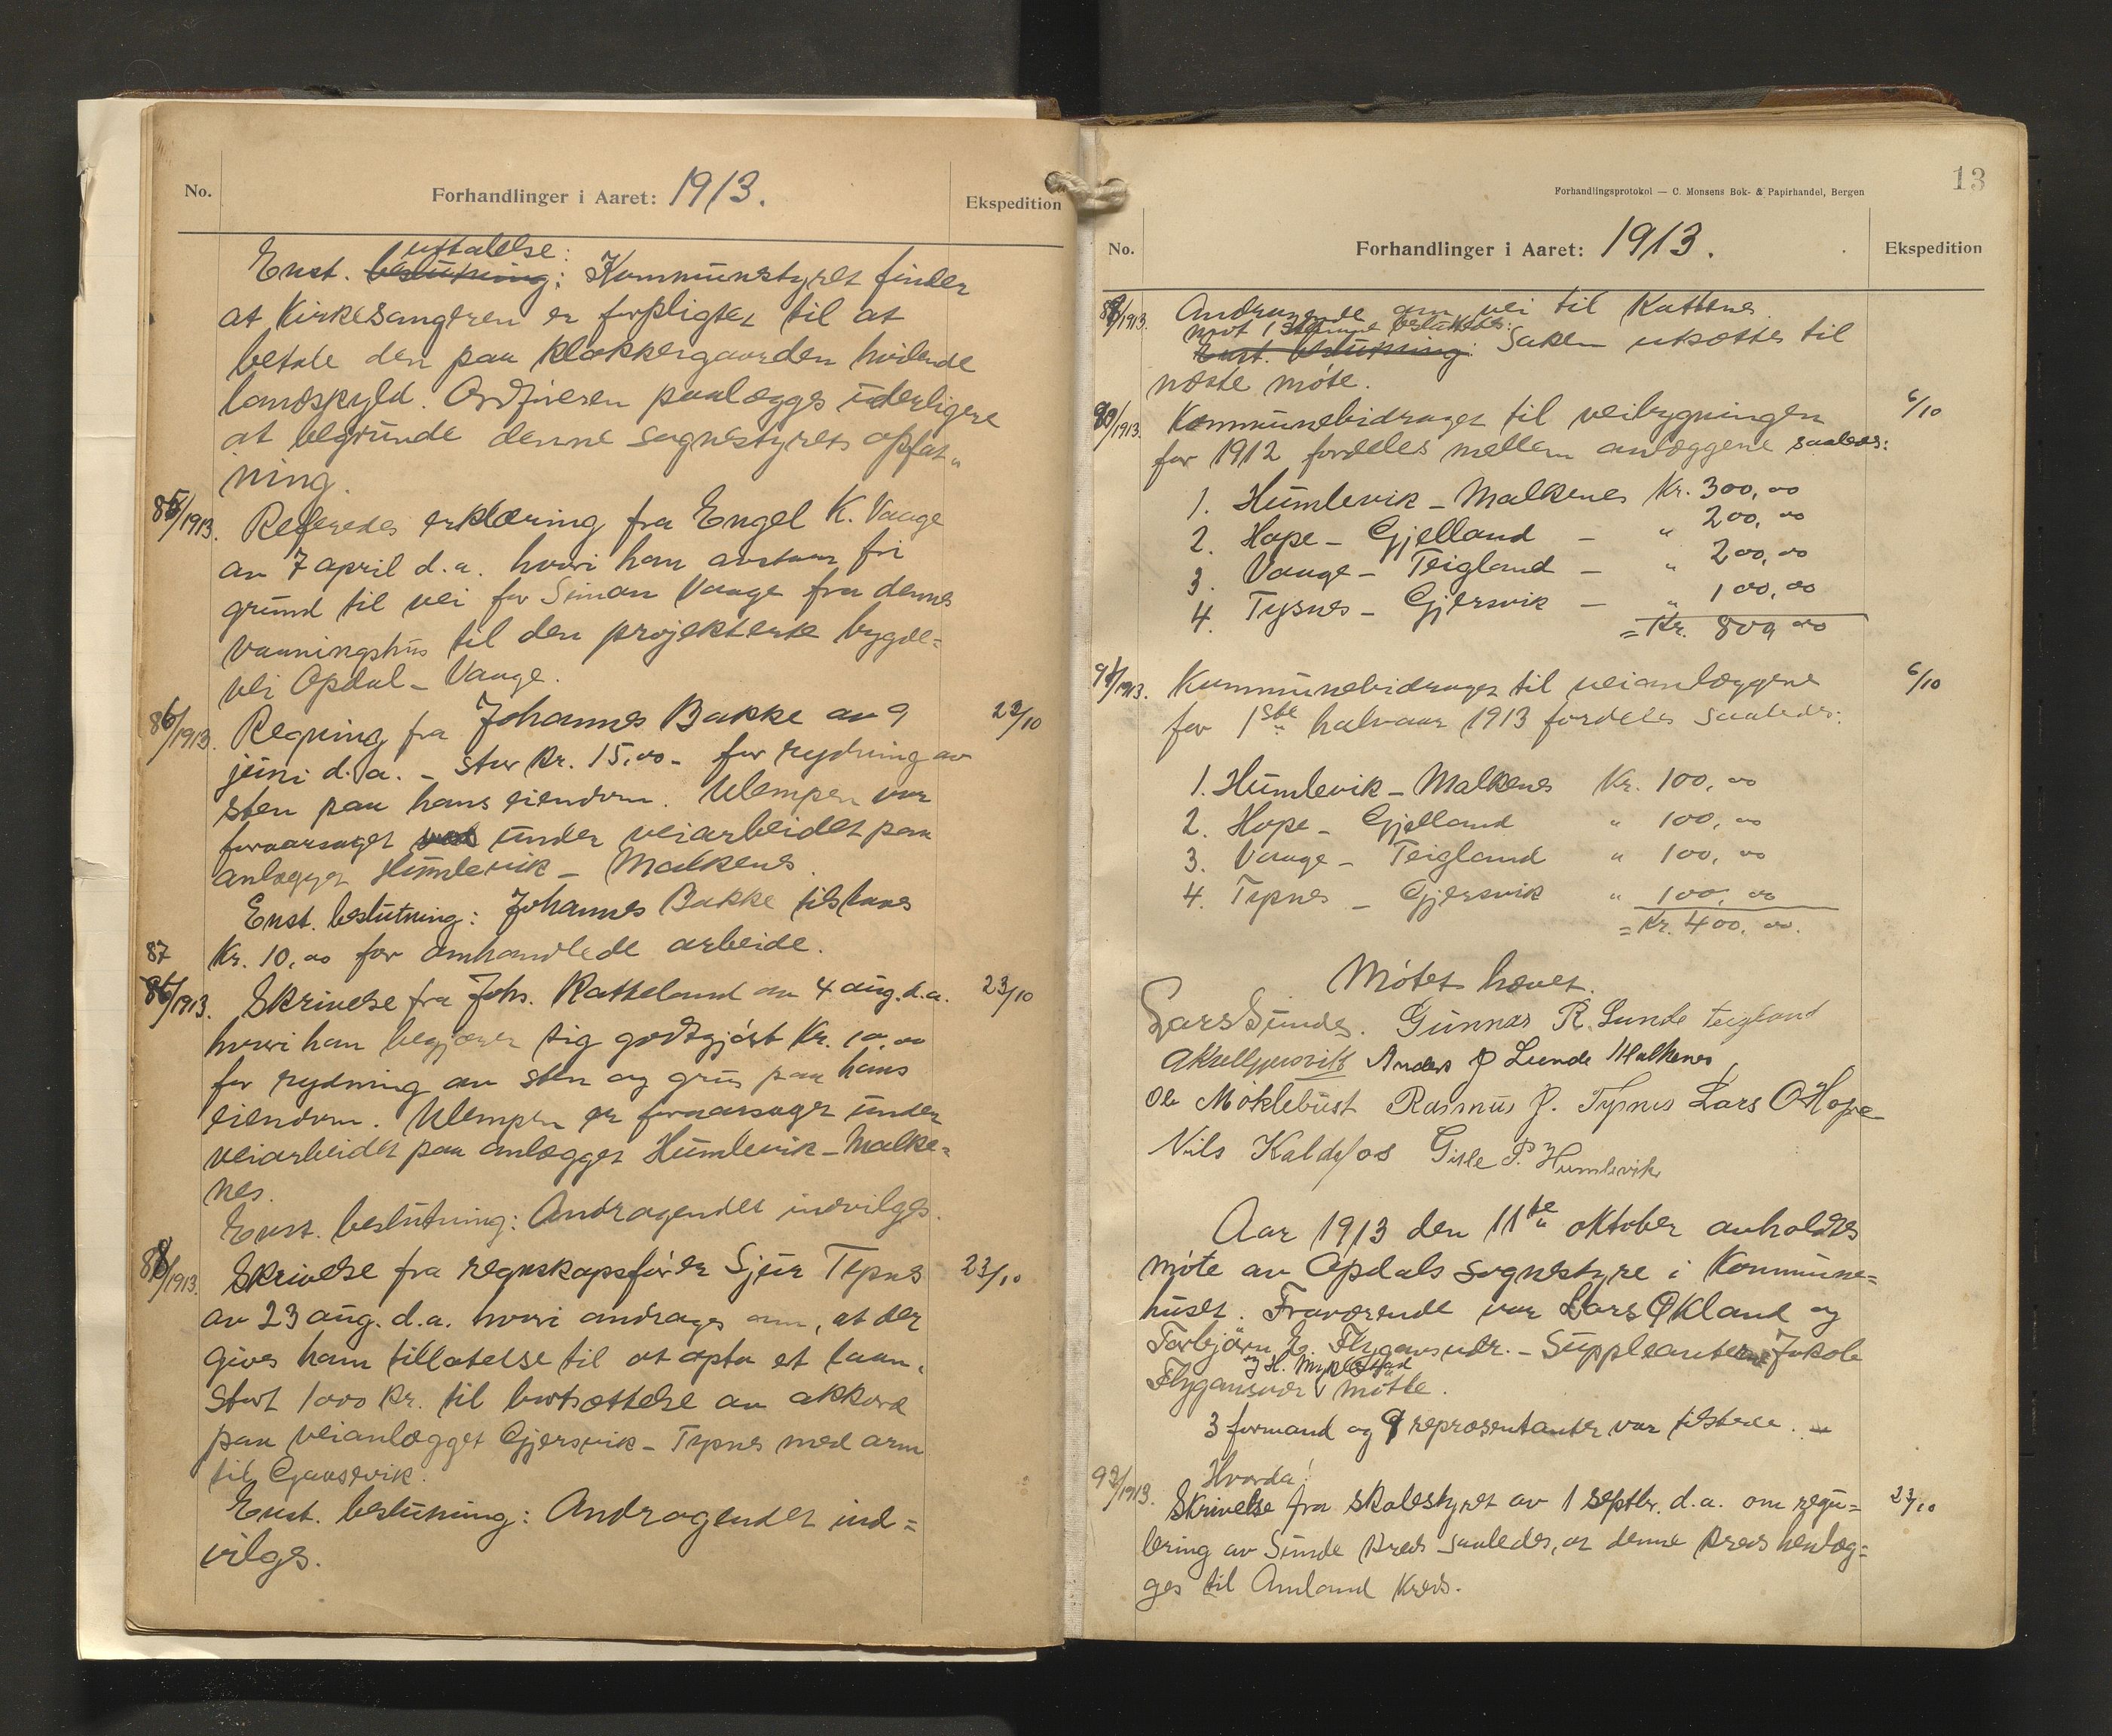 No.
Forhandlinger i Aaret: 1913.
Ekspedition
uttalelse:
Enst. beslutning: Kommunestyret finder
at Kirkesangeren er forpligtet til at
betale den paa klokkergaarden hvilende
landskyld. Ordføreren paalægges yderligere
at begrunde denne sognestyrets opfat„
ning.
85/1913. Refere­des erklæring fra Engel K. Vaage
av 7 april d.a. hvori han avstaar fri
grund til vei for Simon Vaage fra dennes
vaaningshus til den projekterte bygde=
vei Opdal - Vaage.
86/1913. Regning fra Johannes Bakke av 9 23/10
juni d.a. - stor kr. 15,00 - for rydning av
sten paa hans eiendom. Ulempen var
foraarsaget ved under veiarbeidet paa
anlægget Humlevik - Malkenes.
Enst. beslutning: Johannes Bakke tilstaaes
Kr. 10,00 for omhandlede arbeide.
87
86/1913. Skrivelse fra Johs. Rakkeland av 4 aug. d.a. 23/10
hvori han begjærer sig godtgjört Kr. 10,00
for rydning av sten og grus paa hans
eiendom. Ulempen er foraarsaget under
veiarbeidet paa anlægget Humlevik - Malke=
nes.
Enst. beslutning: Andragendet indvilges.
88/1913. Skrivelse fra regnskapsfører Sjur Tysnes 23/10
av 23 aug. d.a. hvori andrages om, at der
gives ham tillatelse til at opta et laan,
stort 1000 Kr. til bortsættelse av akkord
paa veianlægget Gjersvik - Tysnes med arm
til Gaassvik.
Enst. beslutning: Andragendet ind=
vilges.
13
Forhandlingsprotokol — C. Monsens Bok- & Papirhandel, Bergen
No.
Forhandlinger i Aaret: 1913.
Ekspedition
89/1913. Andragende om vei til Kattnes.
mot 1 stemme besluttedes:
Enst. beslutning: Saken utsættes til
næste møte.
90/1913. Kommunebidraget til veibygningen 6/10
for 1912 fordeles mellem anlæggene saaledes:
1. Humlevik - Malkenes Kr. 300,00
2. Hope - Gjelland - " 200,00
3. Vaage - Teigland - " 200,00
4. Tysnes - Gjersvik - " 100,00
= Kr. 800,00
91/1913. Kommunebidraget til veianlæggene 6/10
for 1ste halvaar 1913 fordeles saaledes:
1. Humlevik - Malkenes Kr. 100,00
2. Hope - Gjelland " 100,00
3. Vaage - Teigland " 100,00
4. Tysnes - Gjersvik " 100,00
= Kr. 400,00.
Mötet hævet.
Lars Sunde. Gunnar R. Lunde Teigland
Aksel Gjersvik Anders J Lunde Malkenes
Ole Möklebust Rasmus J. Tysnes Lars O Hope
Nils Kaldefos Gisle P. Humlevik
Aar 1913 den 11te oktober avholdtes
møte av Opdals sognestyre i Kommune=
huset. Fraværende var Lars Økland og
Torbjörn L. Flygansvær. - Suppleanterne Jakob
J H. Myklestad
Flygansvær mötte.
3 formænd og 9 repræsentanter var tilstede. -
Hvorda:
92/1913. Skrivelse fra skolestyret av 1 septbr. d.a. om regu= 23/10
lering av Sunde Kreds saaledes, at denne Kreds henlæg=
ges til Amland Kreds.